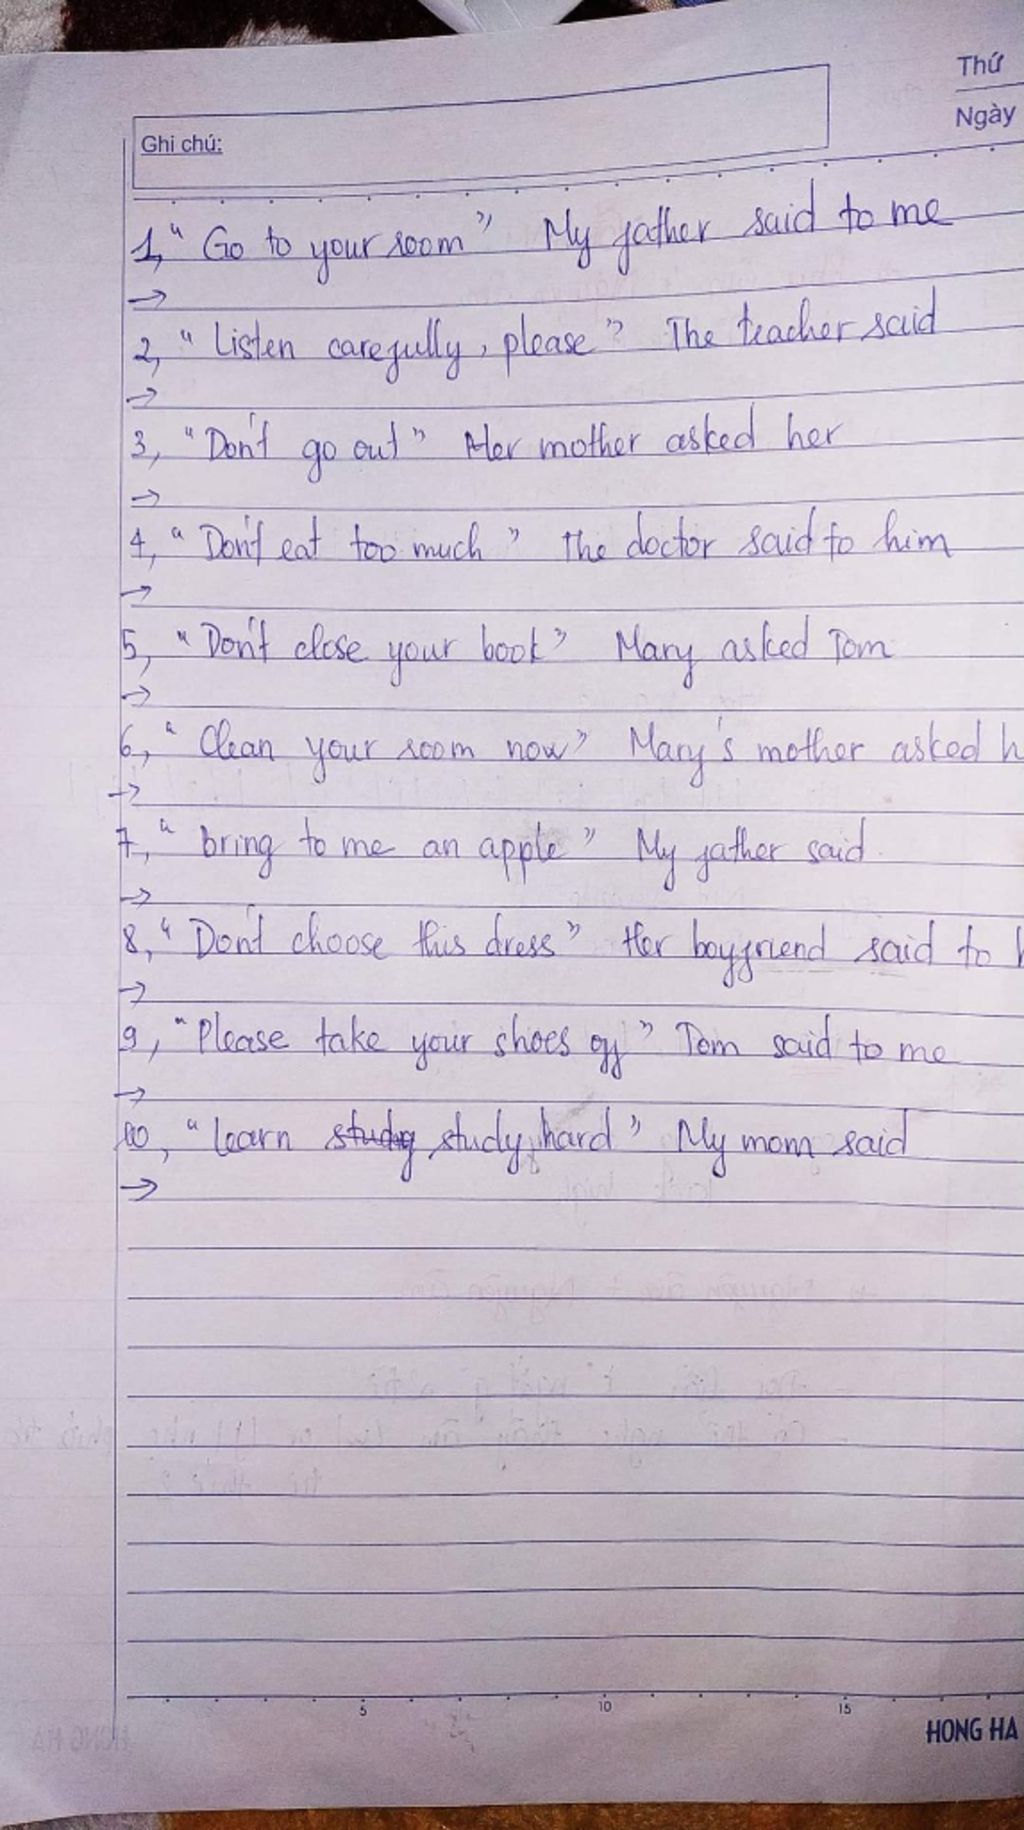 Thứ
Ngày
Ghi chú:
1, " Go to your room " My father said to me
→
2, " Listen carefully, please " The teacher said
→
3, " Don't go out " Her mother asked her
→
4, " Don't eat too much " the doctor said to him
→
5, " Don't close your book " Mary asked Tom
→
6, " Clean your room now " Mary's mother asked h
→
7, " bring to me an apple " My father said
→
8, " Don't choose this dress " Her boyfriend said to h
→
9, " Please take your shoes off " Tom said to me
→
10, " learn study hard " My mom said
→
5 10 15
HONG HA